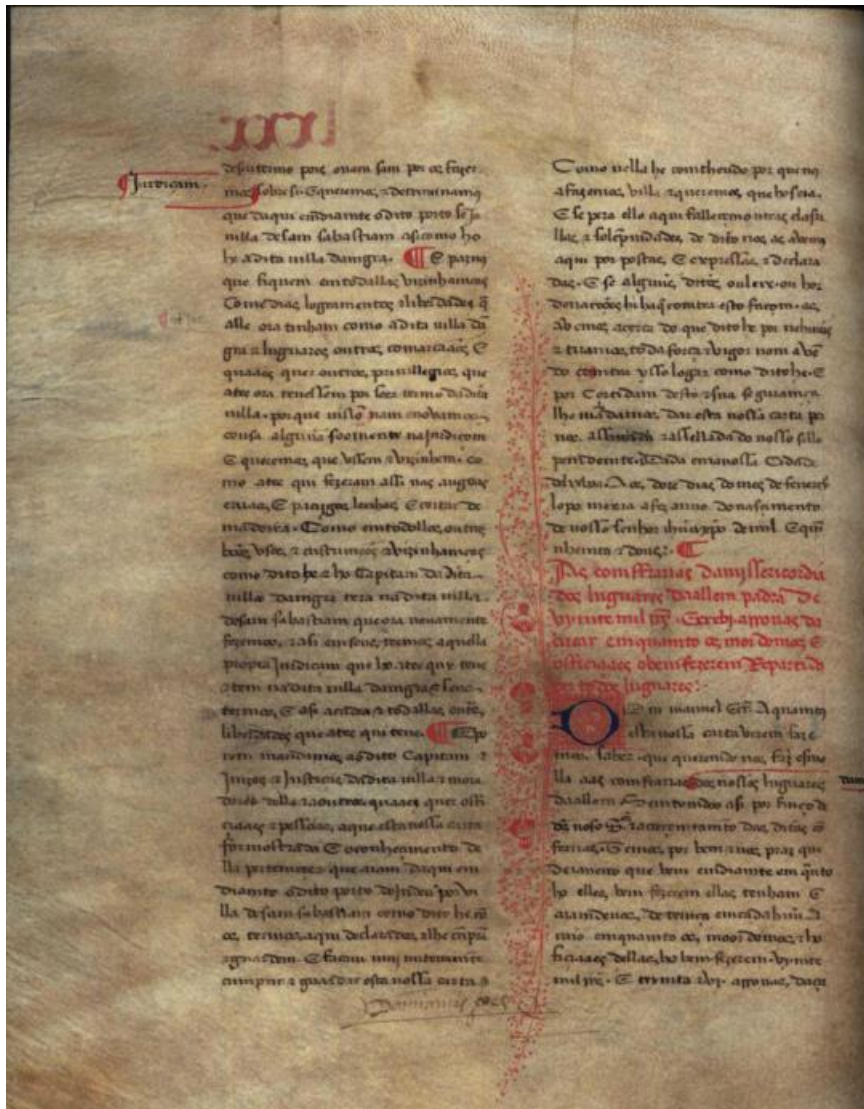 Jurdiçam
de seu termo pois ouem sam por os fazer
mos sobre si. E queremos, & detriminamos
que daqui emdiante o dito porto seJa
villa de sam sabastiam asi como ho
he a dita villa dangra. E pareni
que fiquem em todallas vizinhamças
Comedias logramentos & liberdades q̃
atte ora tinham como a dita villa dã
gra & lugares outros comarcaãos, E
quaaes quer outros, privillegios, que
atee ora tevessem por seer termo da dita
villa. porque nisto nam enovamos
cousa alguũa soomente na Jurdiçom
E queremos, que vssem & vizinhem. co
mo atee qui fezeram assi nas augoas
ervas, E pacigos lenhas E cortar de
madeira. Como em todollos, outros
boõs, vsos, & custumes & vizinhamças
como dito he & ho Capitam da dita
villa dangra tera na dita villa
de sam sabastiam que ora novamente
fazemos, & asi em seus, termos aquella
propia Jurdiçam que ho atee quy teve
& tem na dita villa dangra & seus
termos, E asi as rendas & todallas outras,
liberdades que atee qui teve. E po
rem mandamos ao dito Capitam &
Juizes & Justiças da dita villa & mora
dores della & a outros quaaes quer offi
ciaaes & pessoas, a que esta nossa carta
for mostrada E o conhecimento de
lla pertencer que ajam daqui em
diamte o dito porto do Judeu por vi
lla de sam sabastiam como dito he cõ
os, termos, aqui declarados, & lhe cũpram
& guardem. E façam mui imteiramente
cumprir & guardar esta nossa carta &
Como nella he comtheudo por que nos
a fazemos, villa & queremos, que ho seia.
E se pera ello aqui fallecem outras clasu
llas, & solepnidades, de dito nos as avemos
aqui por postas, E expressas, & declara
das. E se alguũs, ditos, ou leix. ou hor
denaçoões hi ha q̃ comtra esto façom. as,
Avemos acerca do que dito he por nehuũs
& tiramos, toda força & vigor nom avẽ
do comtra ysso logar como dito he. E
por Certidam desto & sua seguramça
lhe mãdamos, dar esta nossa carta per
nos. assinada & assellada do nosso sello
pendente. Dada em a nossa Cidade
de lixboa. A os, doze dias do mes de fevereiro
lopo mexia a fez anno do nasçimento
de nosso senhor ihũu xp̃o de mil E quin
hentos & dous.
Aas, comffrarias da misericordia
dos luguares daallem padrã de
vymte mil rrs̃. E xxbj arrouas, da
cucar emquamto os, moordomos E
officiaaes o bem fezerem Repartido
per todos luguares.
Dom manuel &c̃. A quamtos
esta nossa carta virem faze
mos, saber. que querendo nos, fazer esmo
lla aas comfrarias dos nossos luguares
daallem
dos noso Sõr
Temos, por bem & nos, praz que
de janeiro que vem emdiamte em q̃nto
ho elles, bem fezerem ellas tenham E
ajam de nos, de tença em cada huũ A
nno emquamto os, moordomos, & ho
ficiaaes dellas, ho bem fezerem. vymte
mil rrs̃. E trymta & vj. arrouas, daçu